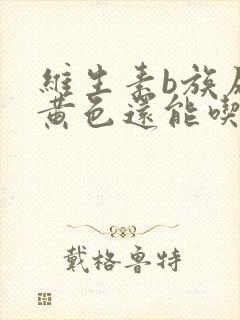 維生素b族
黃色還能喫
戴格魯特